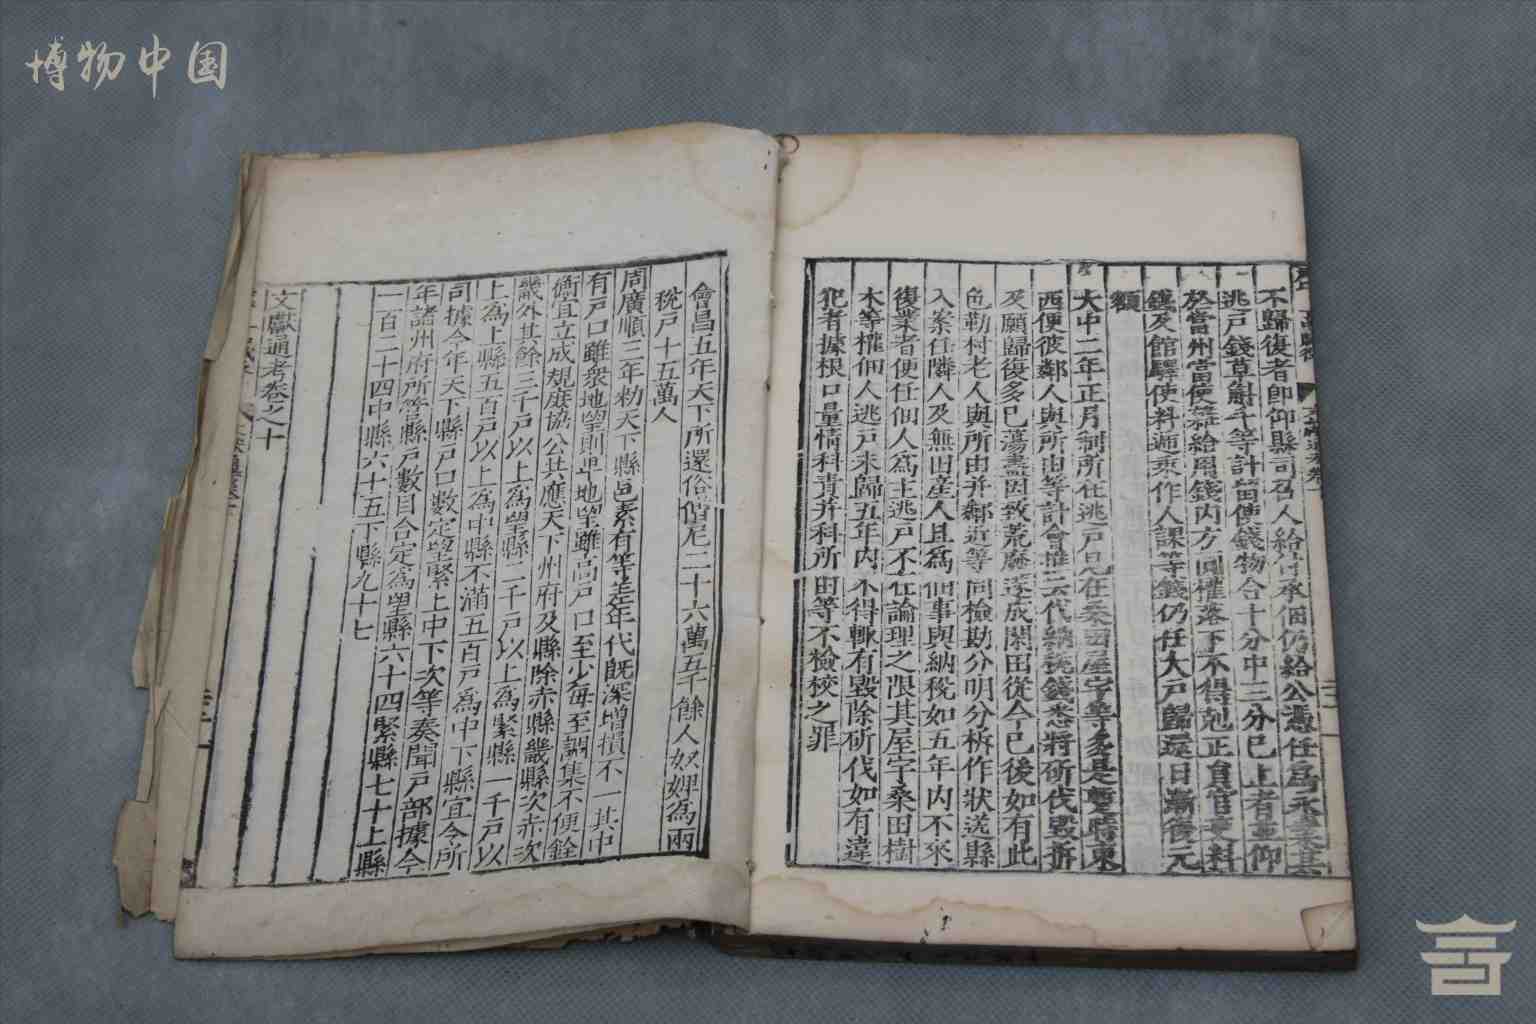 博物中国
不歸復者卽仰縣司召人給付承佃仍給公憑任爲永業其
逃戶錢草斛斗等計留使錢物合十分中三分已上者並仰
於當州當使雜給用錢内方圓權落下不得剋正員官吏料
錢及館驛使料遞乘作人課等錢仍任大戶歸還日漸復元
額
大中二年正月制所在逃戶見在桑田屋宇等多是暫時東
西便被鄰人與所由等計會推云代納稅錢悉將斫伐毀拆
及願歸復多已蕩盡因致荒廢遂成閑田從今已後如有此
色勒村老人與所由并鄰近等同檢勘分明分析作狀送縣
入案任隣人及無田產人且爲佃事與納稅如五年内不來
復業者便任佃人爲主逃戶不在論理之限其屋宇桑田樹
木等權佃人逃戶未歸五年内不得輒有毀除斫伐如有違
犯者據根口量情科責并科所由等不檢校之罪
會昌五年天下所還俗僧尼二十六萬五千餘人奴婢爲兩
稅戶十五萬人
周廣順三年勑天下縣邑素有等差年代旣深增損不一其中
有戶口雖衆地望則卑地望雖高戶口至少每至調集不便銓
衡宜立成規庶協公共應天下州府及縣除赤縣畿縣次赤次
畿外其餘三千戶以上爲望縣二千戶以上爲緊縣一千戶以
上爲上縣五百戶以上爲中縣不滿五百戶爲中下縣宜令所
司據今年天下縣戶口數定望緊上中下次等奏聞戶部據今
年諸州府所管縣戶數目合定爲望縣六十四緊縣七十上縣
一百二十四中縣六十五下縣九十七
文獻通考卷之十